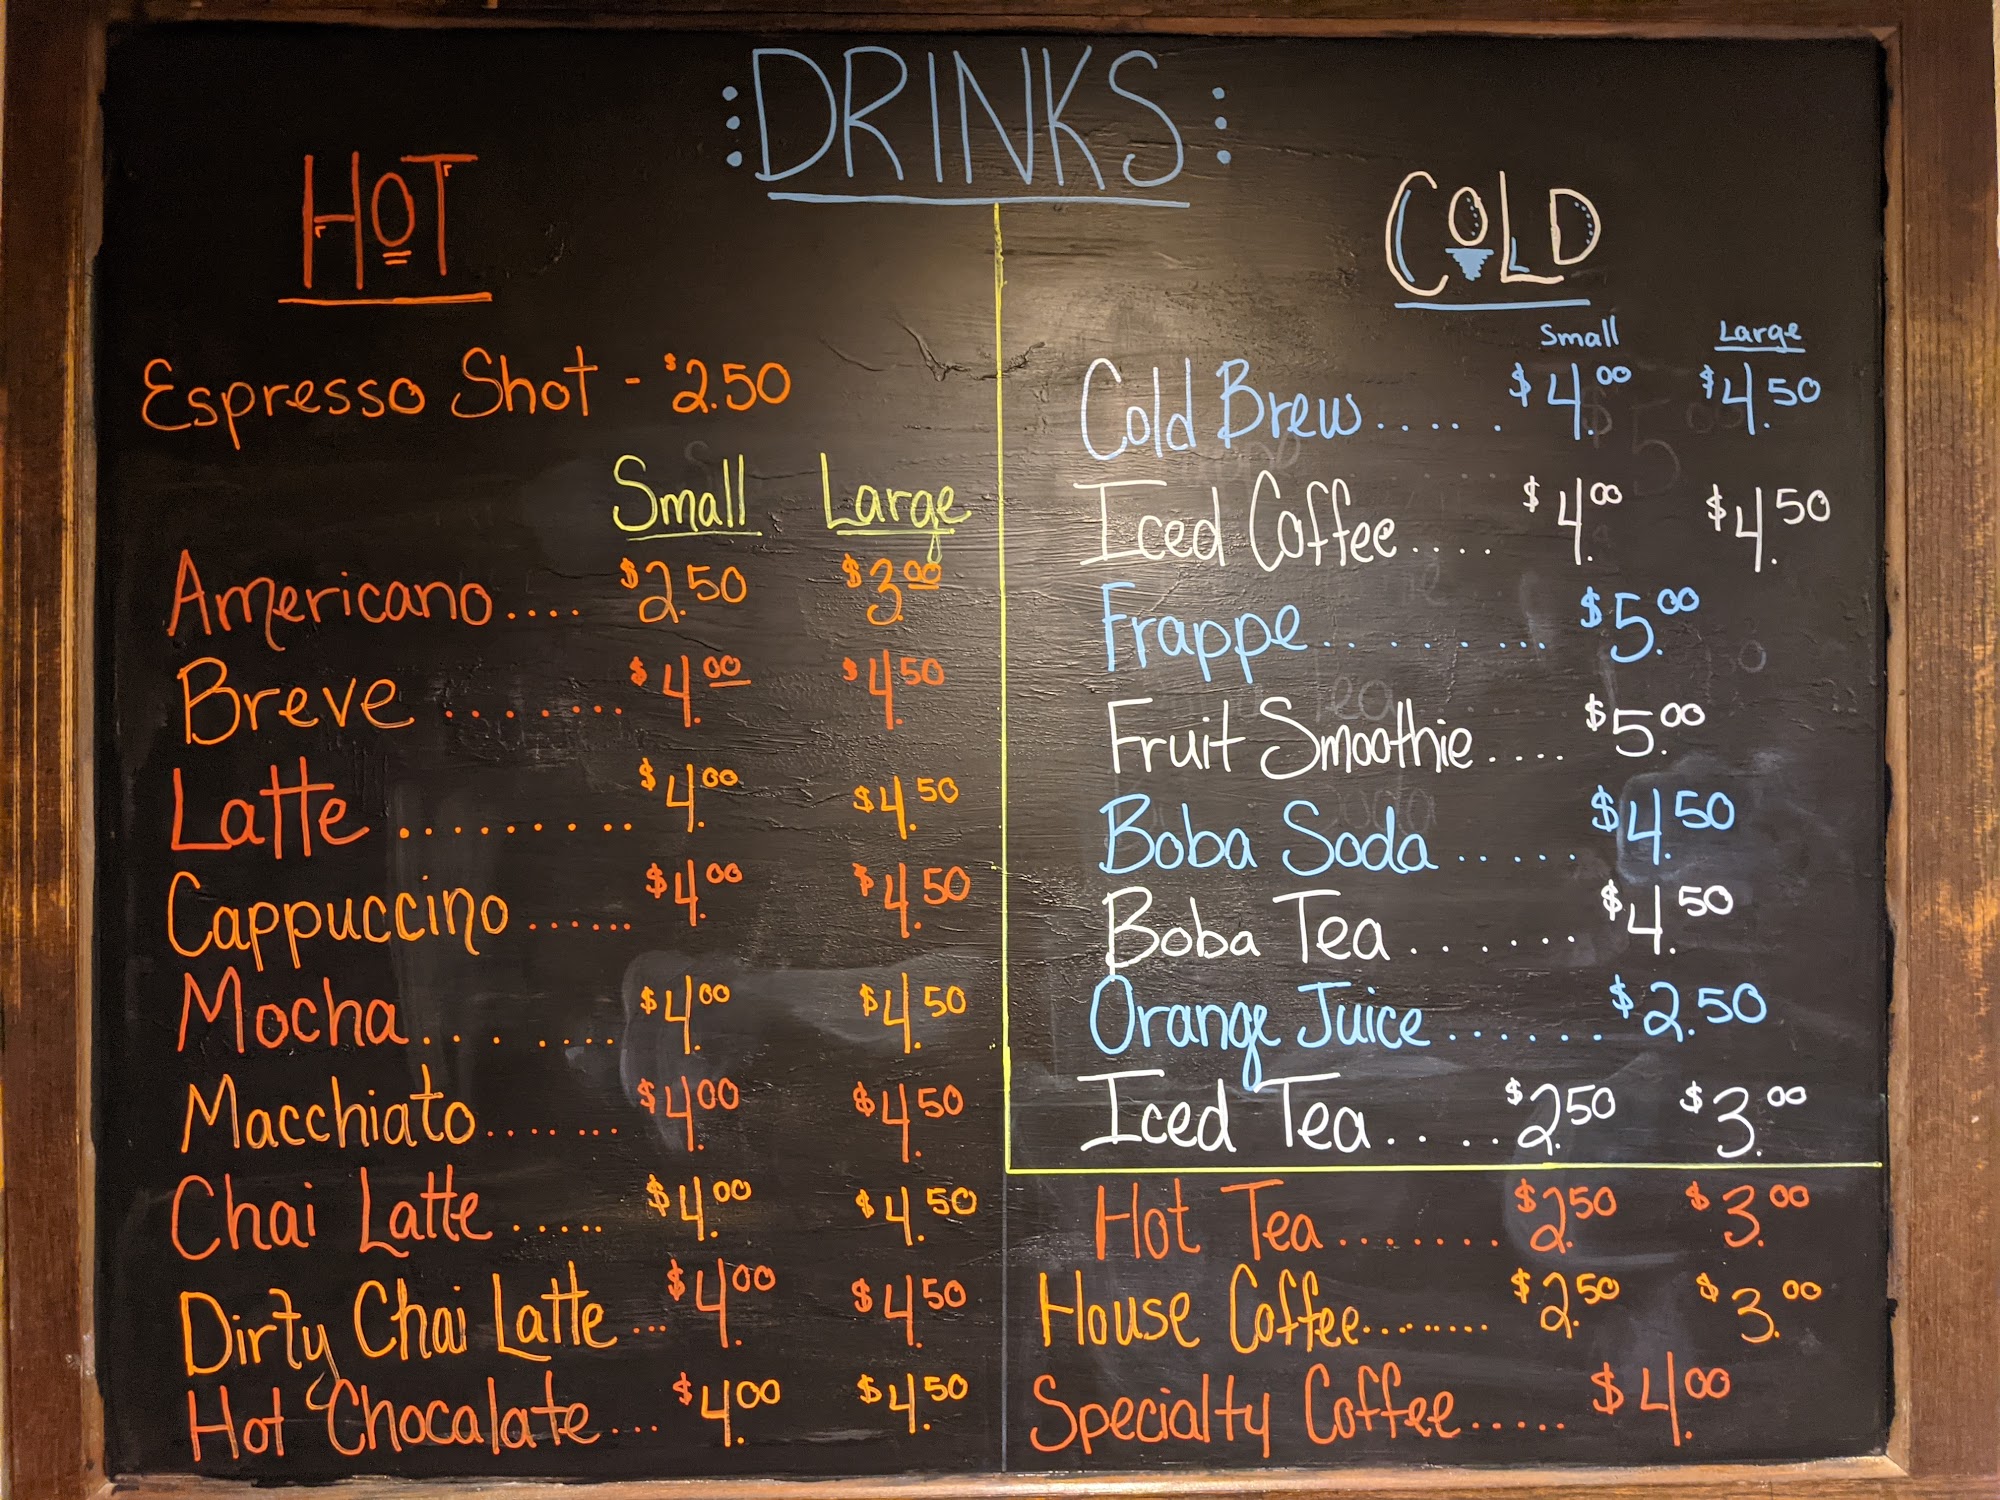 DRINKS
HOT
Espresso Shot - $2.50
Small Large
Americano.... $2.50 $3.00
Breve ........ $4.00 $4.50
Latte ......... $4.00 $4.50
Cappuccino ...... $4.00 $4.50
Mocha....... $4.00 $4.50
Macchiato....... $4.00 $4.50
Chai Latte ...... $4.00 $4.50
Dirty Chai Latte ... $4.00 $4.50
Hot Chocalate... $4.00 $4.50
COLD
Small Large
Cold Brew...... $4.00 $4.50
Iced Coffee.... $4.00 $4.50
Frappe......... $5.00
Fruit Smoothie.... $5.00
Boba Soda ...... $4.50
Boba Tea ....... $4.50
Orange Juice ....... $2.50
Iced Tea..... $2.50 $3.00
Hot Tea........ $2.50 $3.00
House Coffee......... $2.50 $3.00
Specialty Coffee..... $4.00